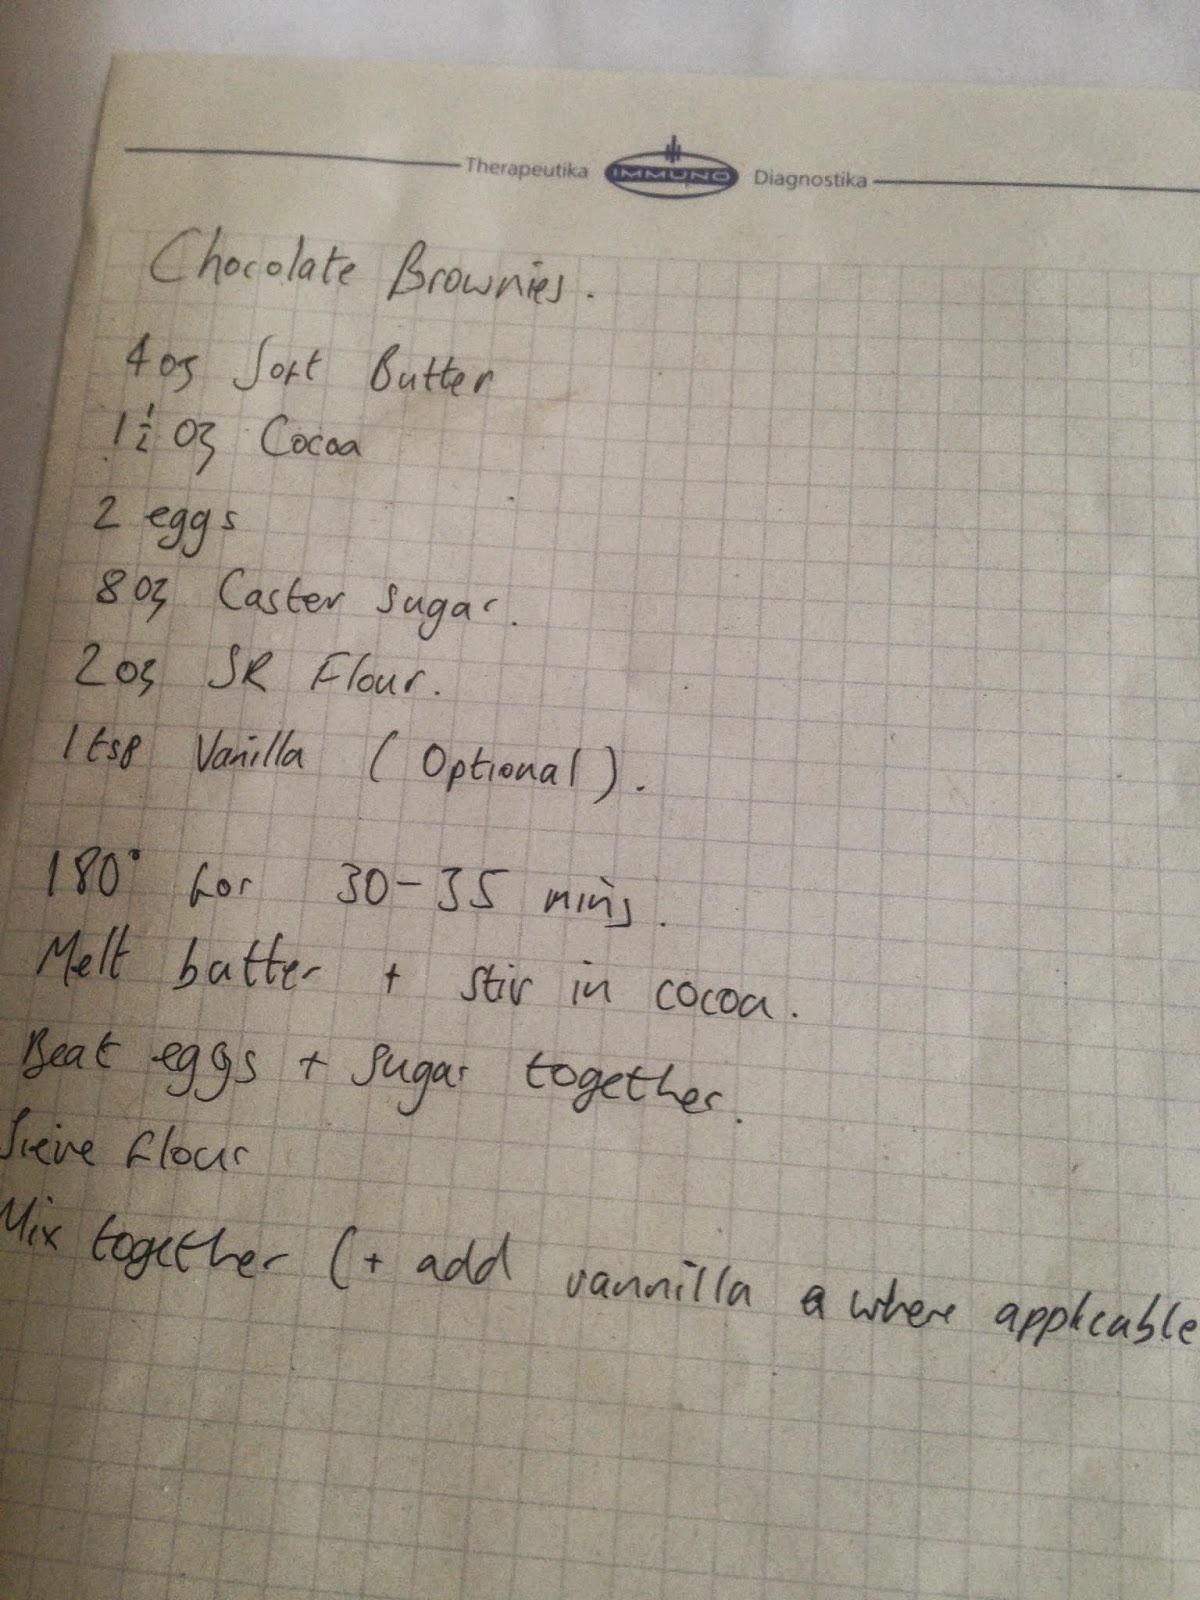 Therapeutika IMMUNO Diagnostika
Chocolate Brownies.
4oz Soft Butter
1 1/2 oz Cocoa
2 eggs
8oz Caster sugar.
2oz SR Flour.
1tsp Vanilla (Optional).
180° for 30-35 mins.
Melt butter + stir in cocoa.
Beat eggs + sugar together.
Sieve flour
Mix together (+ add vannilla a where applicable